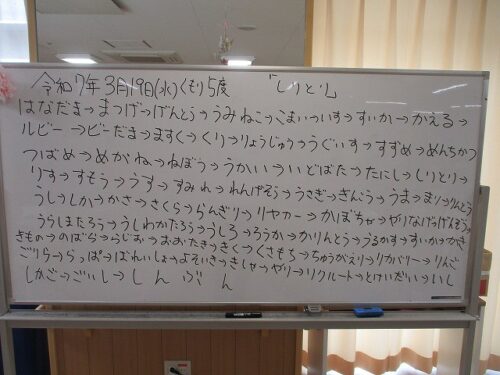 令和7年3月19日(水)くもり5度 「しりとり」
はなだま→まつげ→げんとう→うみねこ→こまい→いす→すいか→かえる→
ルビー→ビーだま→ますく→くり→りょうじゅう→うぐいす→すずめ→めんちかつ
つばめ→めがね→ねぼう→うかい→いどばた→たにし→しりとり→
りす→すもう→うす→すみれ→れんげそう→うさぎ→ぎんこう→うま→まり→りんどう
うし→しか→かさ→さくら→らんぎり→リヤカー→かぼちゃ→やりなげ→げんそう
うらしまたろう→うしわかたろう→うしろ→ろうか→かりんとう→うるかす→すいか→かき
きもの→のばら→らじお→おおたき→きく→くさもち→ちゅうがえり→リカバリー→りんご
ごりら→らっぱ→ばれいしょ→よそいき→きしゃ→やり→リクルート→とけいだい→いし
しかご→ごいし→しんぶん